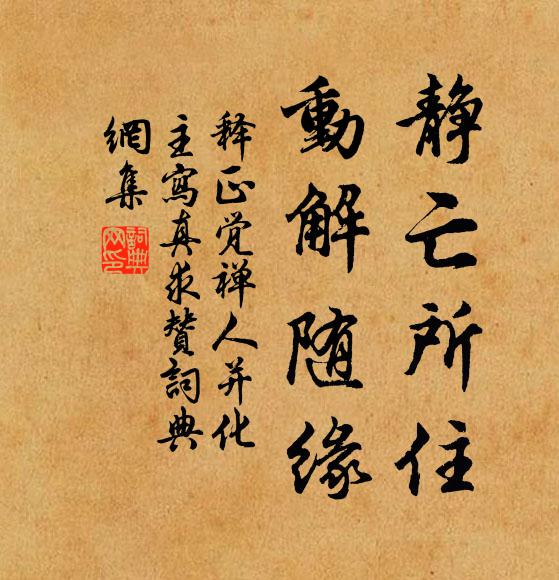 静亡所住
動解随缘
释正觉禅人并化
主寫真求贊詞典
網集
詞典網印